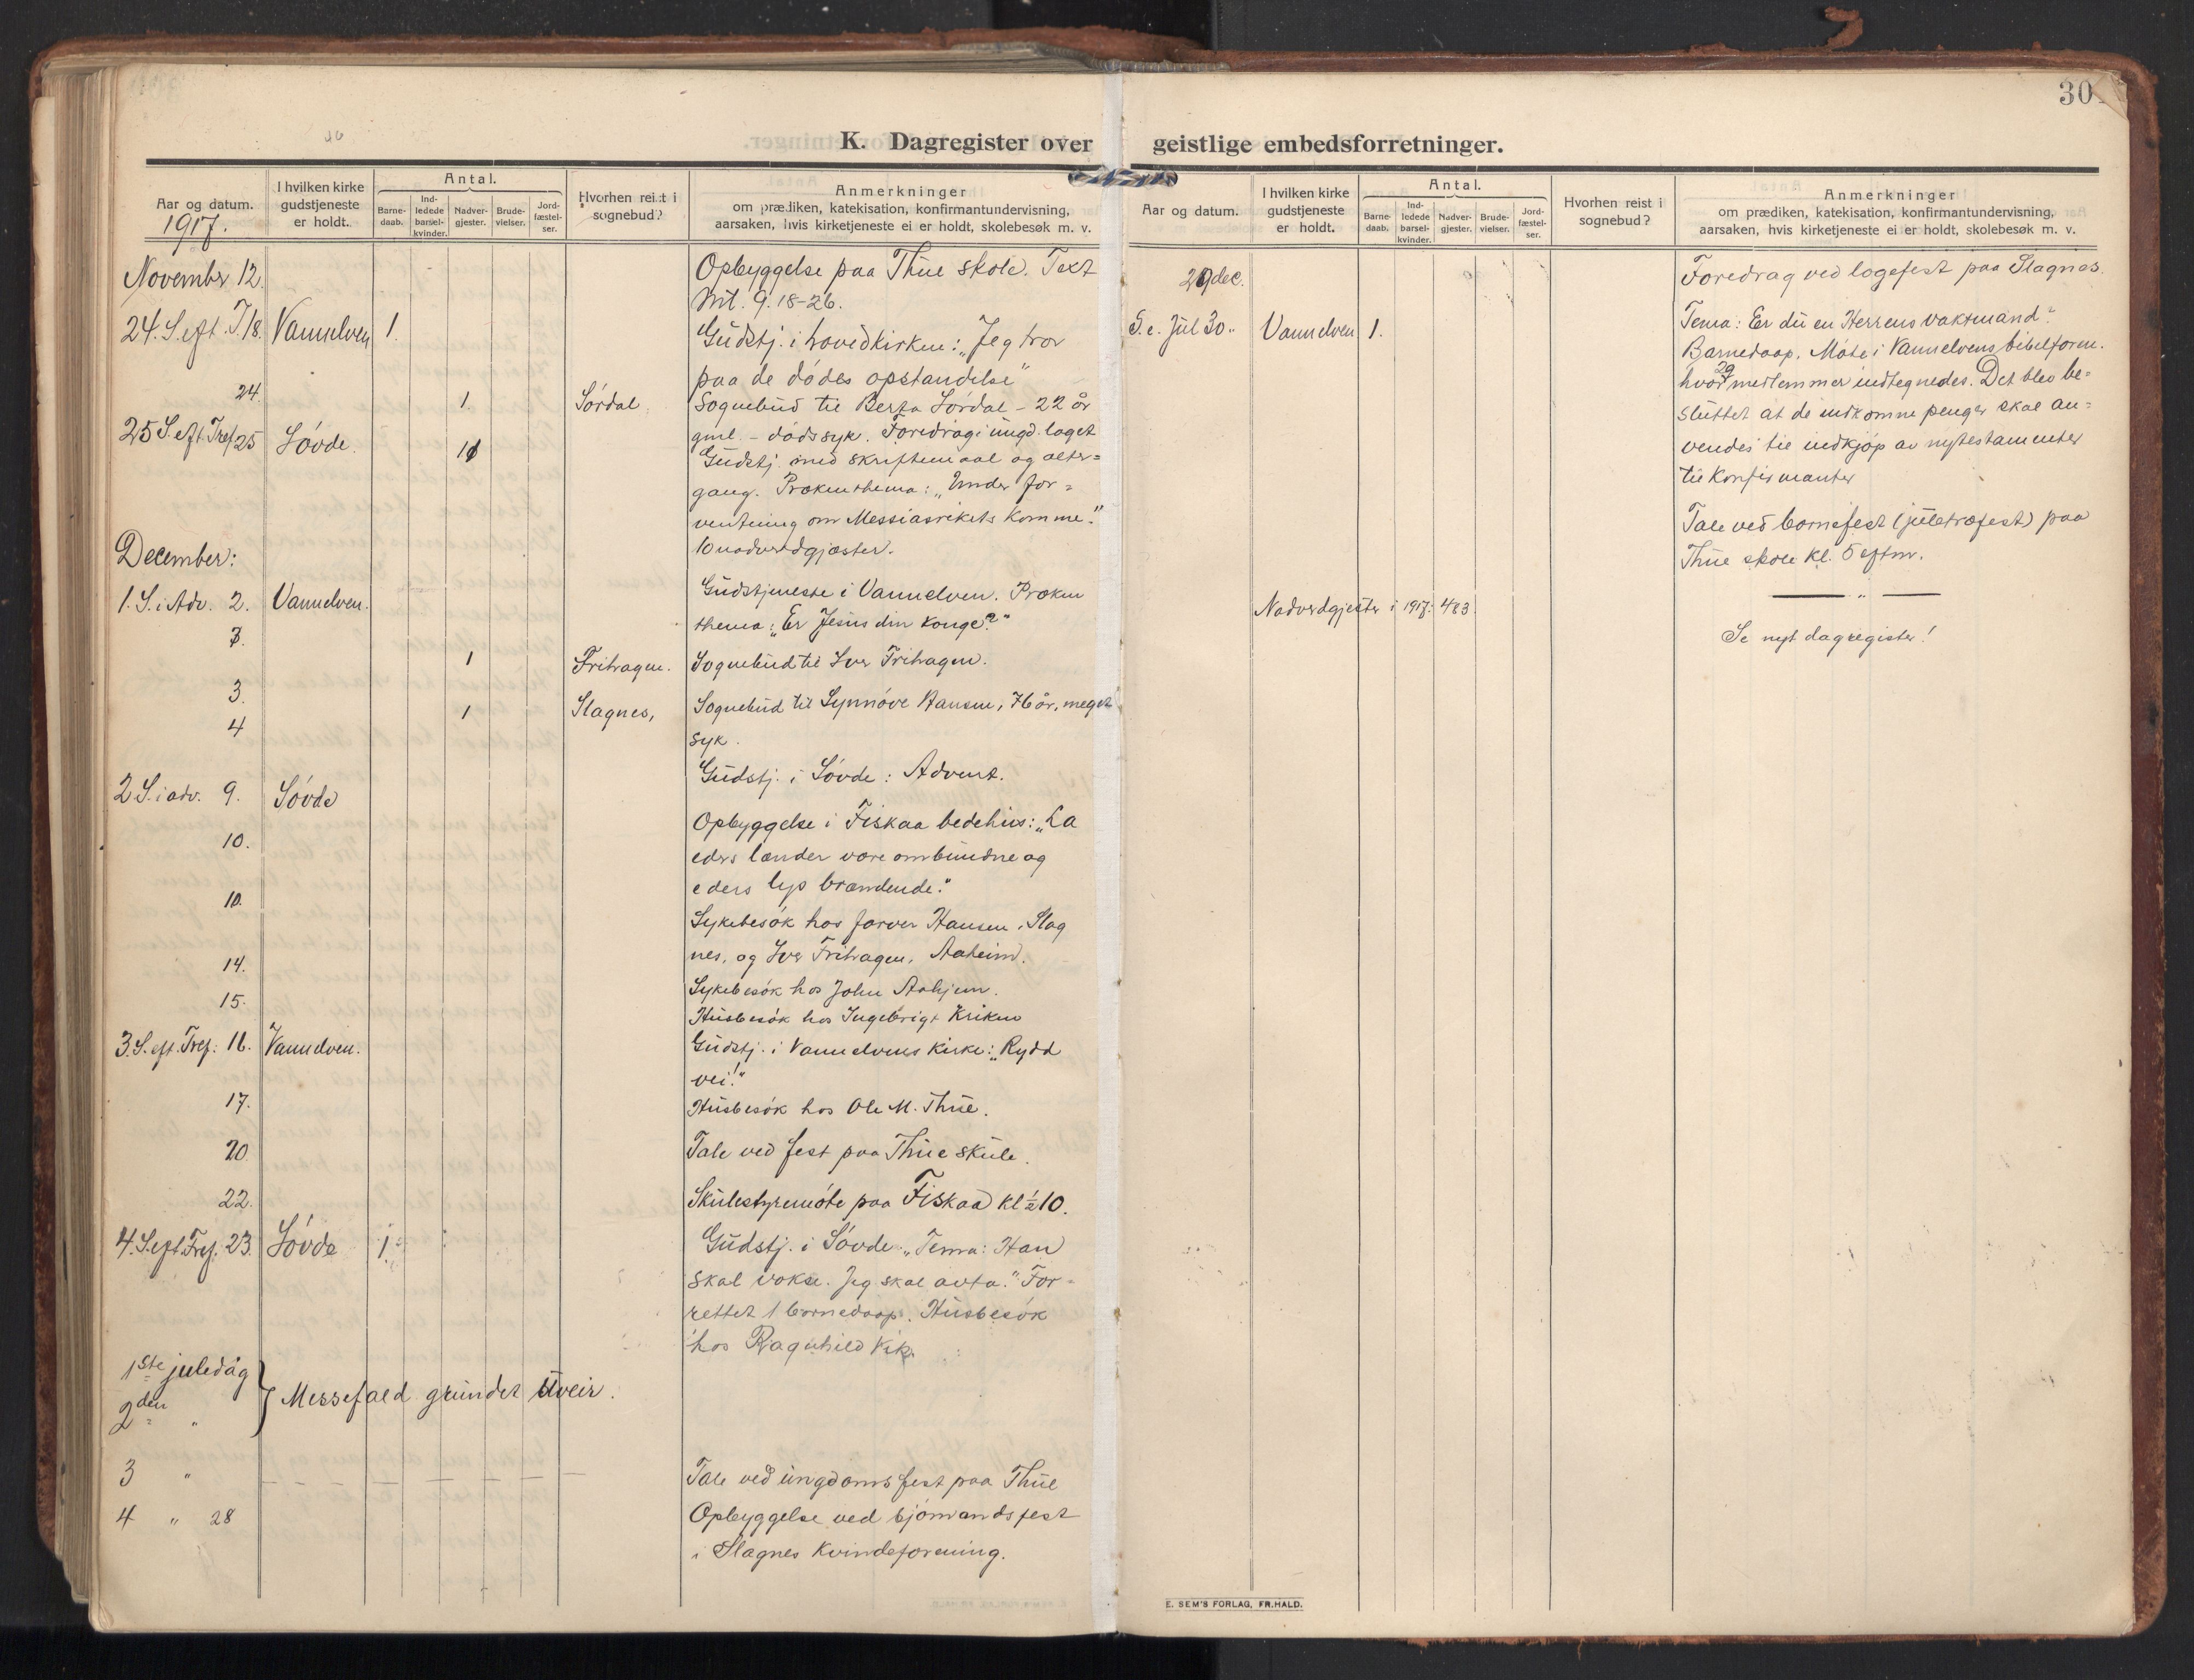 30
K. Dagregister over geistlige embedsforretninger.
Aar og datum.
1917.
I hvilken kirke gudstjeneste er holdt.
Antal.
Barne-daab.
Ind-ledede barsel-kvinder.
Nadver-gjester.
Brude-vielser.
Jord-fæstel-ser.
Hvorhen reist i sognebud?
Anmerkninger
om prædiken, katekisation, konfirmantundervisning,
aarsaken, hvis kirketjeneste ei er holdt, skolebesøk m. v.
November 12. Opbyggelse paa Thue skole. Text
Mt. 9. 18-26.
24. S. eft. T. 18. Vannelven 1. Gudstj. i hovedkirken: „Jeg tror
paa de dödes opstandelse"
24. 1. Sördal. Sognebud til Berta Sördal - 22 år
gml. - dödssyk. Foredrag i ungd. laget
25 S. eft. Tref. 25 Sövde. 10 Gudstj. med skriftemaal og alter=
gang. Prækenthema: „Under for=
ventning om Messiasrikets komme."
10 nadverdgjæster.
December:
1. S. i Adv. 2. Vannelven. Gudstjeneste i Vannelven. Præken
thema: „Er Jesus din konge?"
3. 1 Fritvagen. Sognebud til Iver Fritvagen.
3. 1 Slagnes, Sognebud til Synnöve Hansen, 76 år, meget
4 syk.
2 S. i adv. 9. Sövde Gudstj. i Sövde: Advent.
10. Opbyggelse i Fiskaa bedehus: „La
eders lænder være ombundne og
eders lys brændende."
10. Sykebesök hos farver Hansen, Slag
nes, og Iver Fritvagen, Aaheim.
14. Sykebesök hos John Aahjem.
15. Husbesök hos Ingebrigt Kriken
3. S. eft. Tref: 16. Vannelven. Gudstj. i Vannelvens kirke: „Rydd
vei!"
17. Husbesök hos Ole M. Thue.
20. Tale ved fest paa Thue skule.
22. Skulestyremöte paa Fiskaa kl ½ 10.
4. S. eft. Tref. 23. Sövde 1. Gudstj. i Sövde: „Tema: Han
skal vokse. Jeg skal avta." For=
rettet 1 barnedaap. Husbesök
hos Ragnhild Vik.
1ste juledag
2den „ } Messefald grundet uveir.
3 „ Tale ved ungdomsfest paa Thue
4 „ 28 Opbyggelse ved sjömandsfest
i Slagnes Kvindeforening.
Aar og datum.
I hvilken kirke gudstjeneste er holdt.
Antal.
Barne-daab.
Ind-ledede barsel-kvinder.
Nadver-gjester.
Brude-vielser.
Jord-fæstel-ser.
Hvorhen reist i sognebud?
Anmerkninger
om prædiken, katekisation, konfirmantundervisning,
aarsaken, hvis kirketjeneste ei er holdt, skolebesøk m. v.
29 dec. Foredrag ved logefest paa Slagnes.
S. e. Jul 30. Vannelven 1. Tema: Er du en Herrens vaktmand?
Barnedaap. Möte i Vannelvens bibelforen.
hvor 29 medlemmer indtegnedes. Det blev be=
sluttet at de indkomne penger skal an=
vendes til indkjöp av nytestamenter
til konfirmanter
Tale ved barnefest (juletræfest) paa
Thue skole kl. 5 eftm.
Nadverdgjester i 1917: 483
Se nyt dagregister!
E. SEM'S FORLAG, FR.HALD.